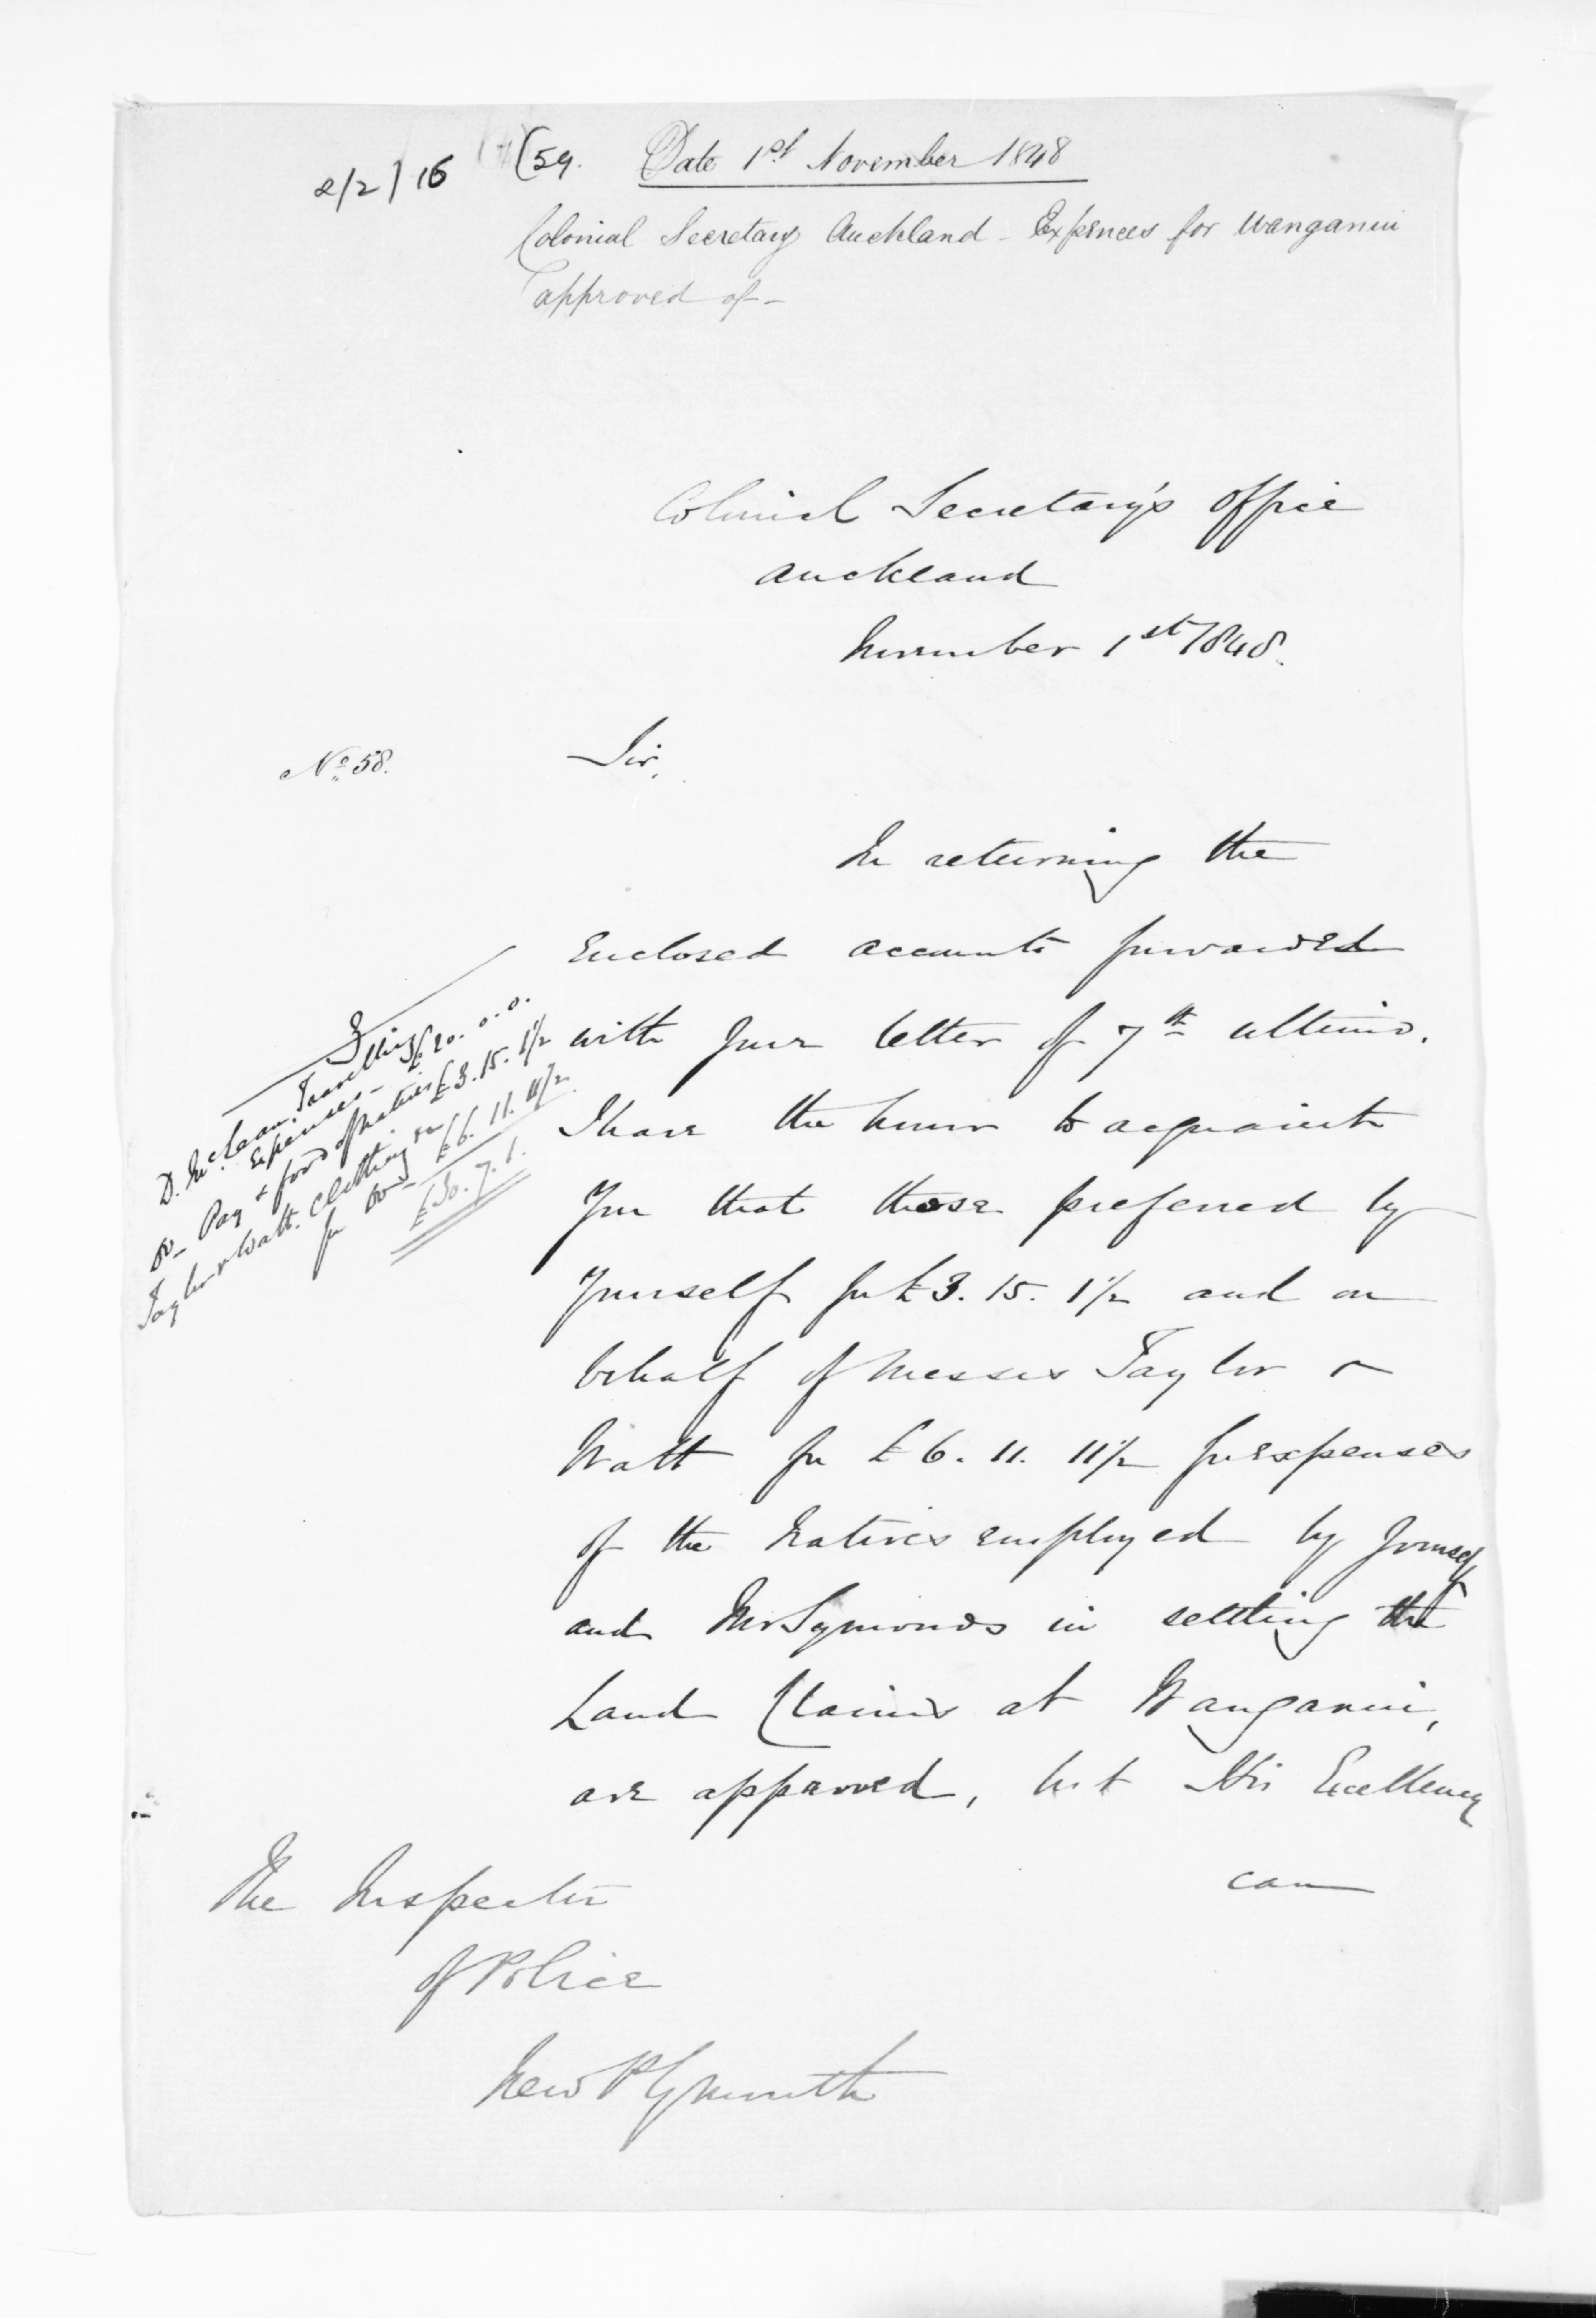 2/2) 16
(59. Date 1st November 1848
Colonial Secretary Auckland - Expences for Wanganui
approved of -
Colonial Secretary's Office
Auckland
November 1st 1848.
No. 58.
Sir,
In returning the
Enclosed accounts forwarded
with your letter of 7th ultimo.
I have the honor to acquaint
you that those preferred by
yourself for £3. 15. 1½ and on
behalf of Messrs Taylor &
Watt for £6. 11. 11½ for expenses
of the Natives employed by yourself
and Mr Symonds in settling the
Land Claims at Wanganui,
are approved, but His Excellency
can
D. McLean. Travelling
Expenses - £20. 0. 0.
Do - Pay & food of natives £3. 15. 1½
Taylor & Watt. Clothing
for Do - £6. 11. 11½
£30. 7. 1.
The Inspector
of Police
New Plymouth